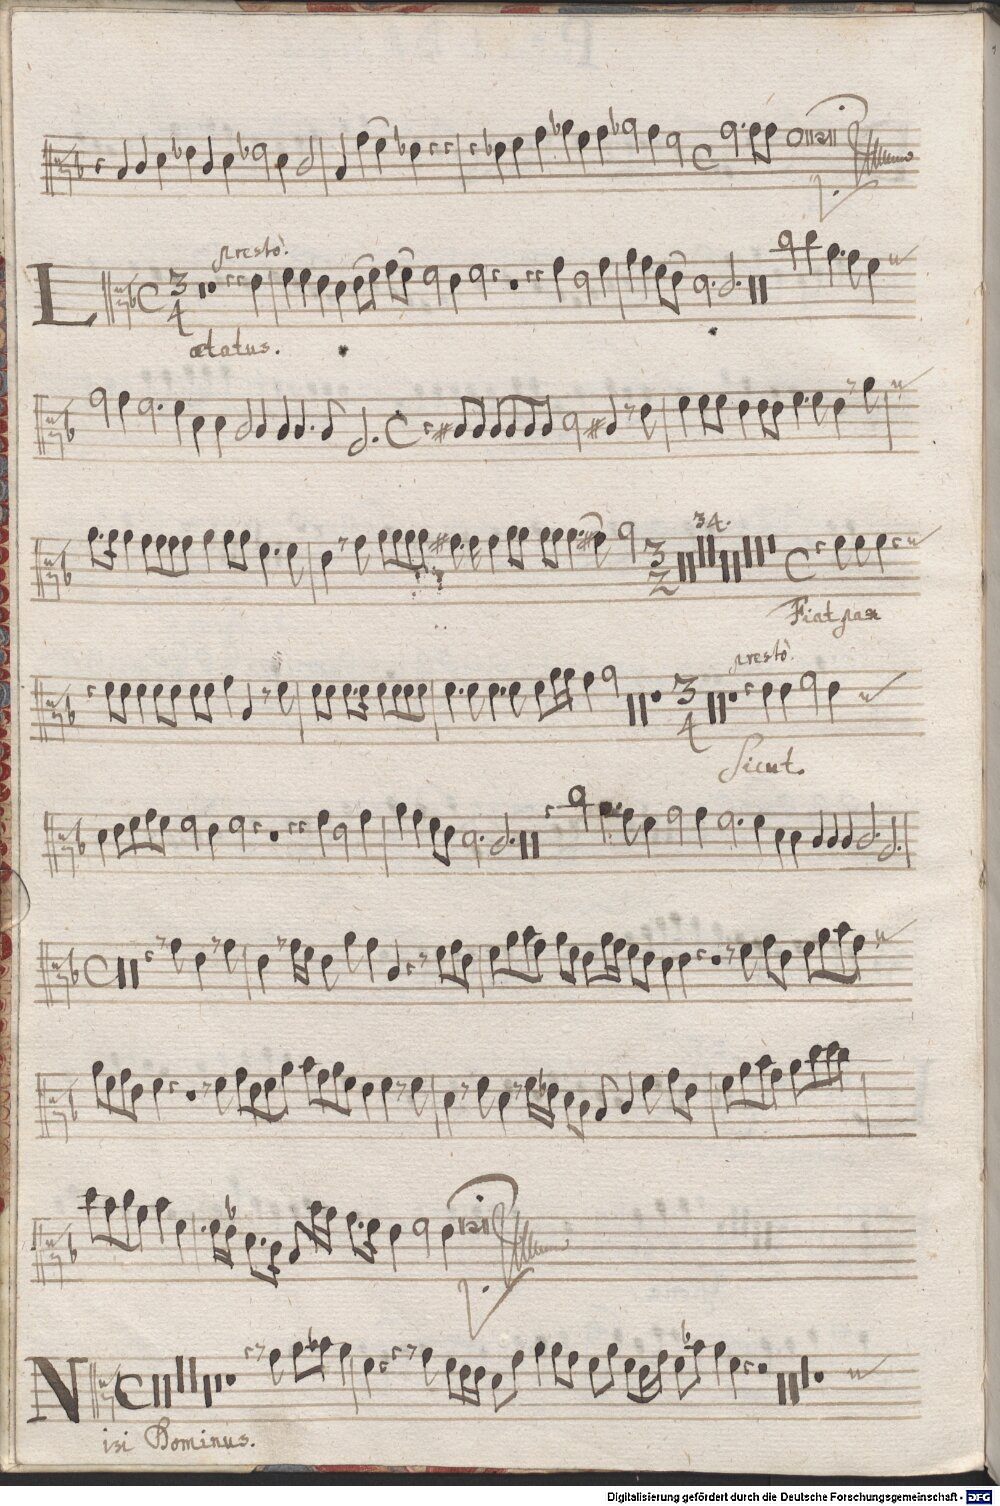 prestò.
L
ætatus.
34.
Fiat pax
prestò.
Sicut.
N
isi Dominus.
Digitalisierung gefördert durch die Deutsche Forschungsgemeinschaft - DFG